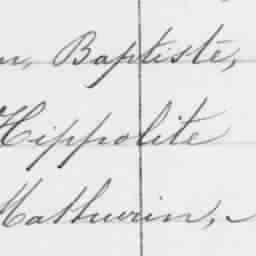 n, Baptiste,
Hippolite
Mathurin,